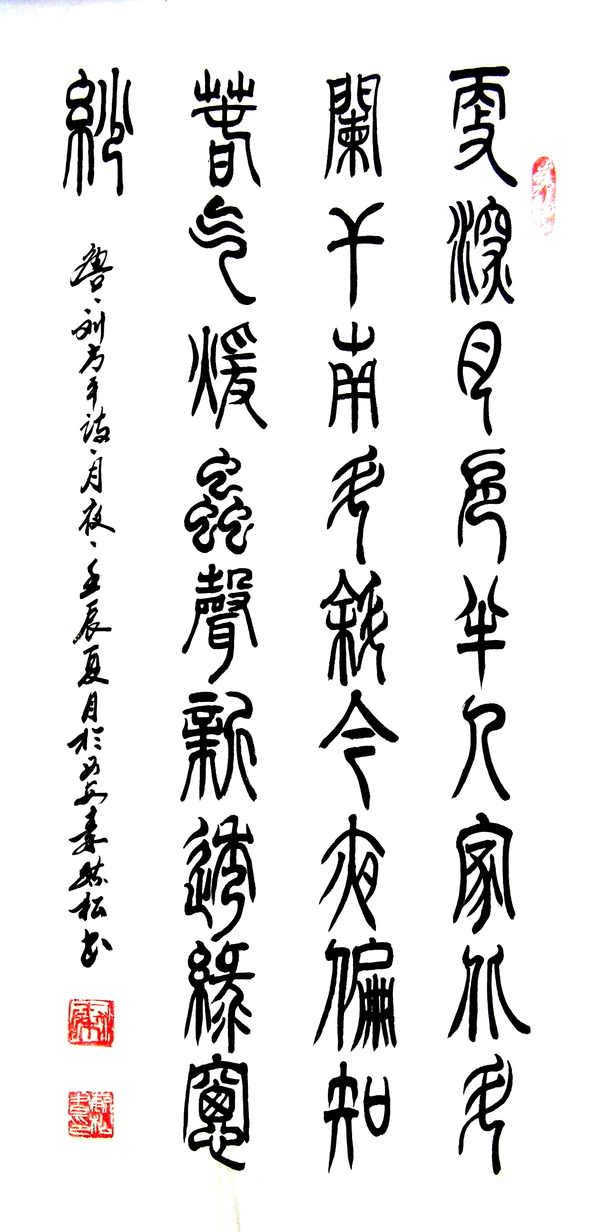 更深月色半人家北斗
闌干南斗斜今夜偏知
春气煖蟲聲新透綠窗
紗
唐、刘方平诗、月夜、壬辰夏月於西安秦松书